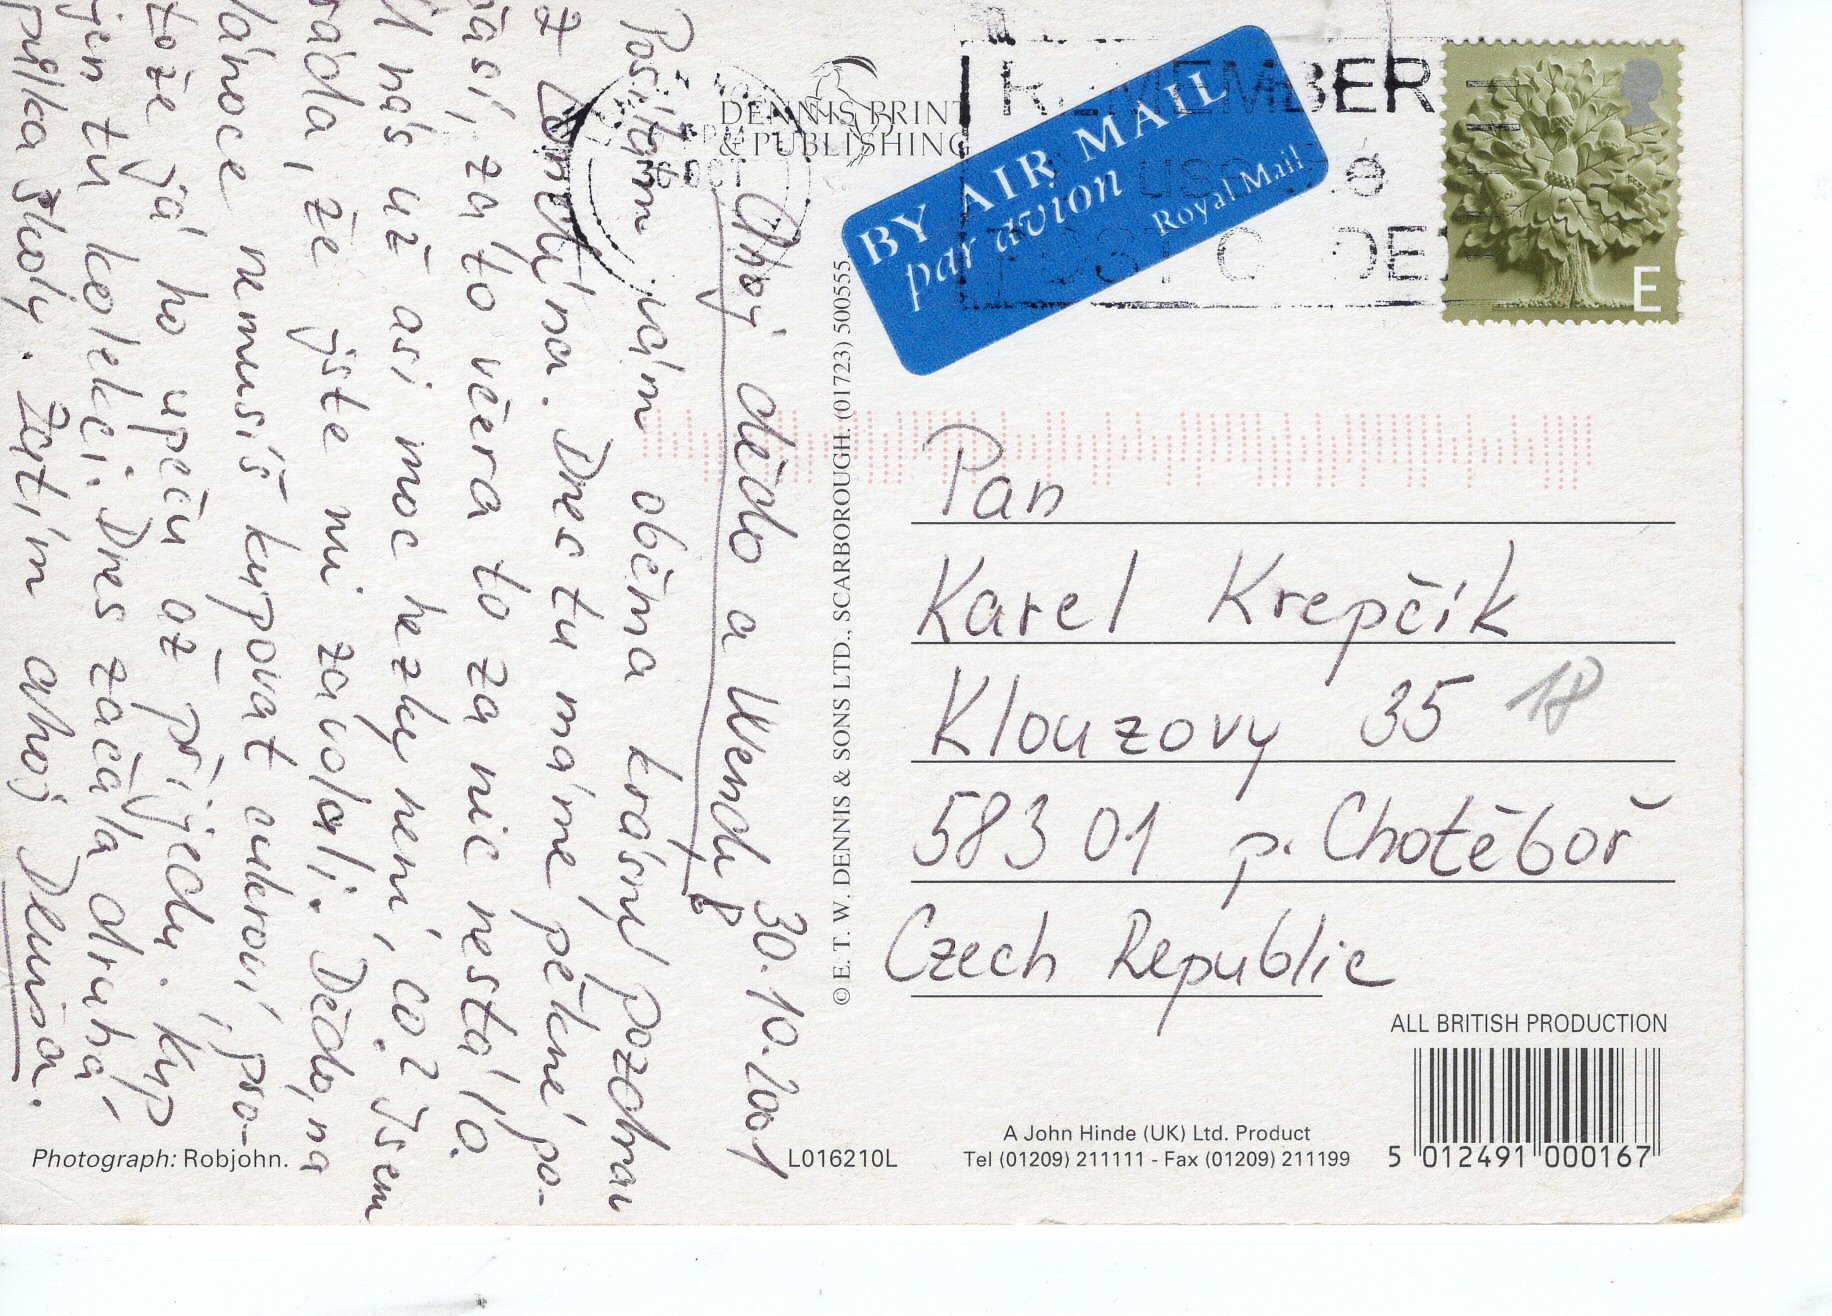 DENNIS PRINT
& PUBLISHING
30 OCT
REMEMBER
use the
POST CODE
BY AIR MAIL
par avion
Royal Mail
E
30.10.2001
Ahoj dědo a Wendy
Posílám vám oběma krásný pozdrav
z Londýna. Dnes tu máme pěkné po-
časí, za to včera to za nic nestálo.
U nás už asi moc hezky není, co? Jsem
ráda, že jste mi zavolali. Dědo, na
Vánoce nemusíš kupovat cukroví, pro-
tože já ho upeču až přijedu. Kup
jen tu kolekci. Dnes začala druhá
půlka školy. Zatím ahoj Denisa.
© E. T. W. DENNIS & SONS LTD., SCARBOROUGH. (01723) 500555.
Pan
Karel Krepčík
Klouzovy 35 18
583 01 p. Chotěboř
Czech Republic
ALL BRITISH PRODUCTION
Photograph: Robjohn.
L016210L
A John Hinde (UK) Ltd. Product
Tel (01209) 211111 - Fax (01209) 211199
5 012491 000167